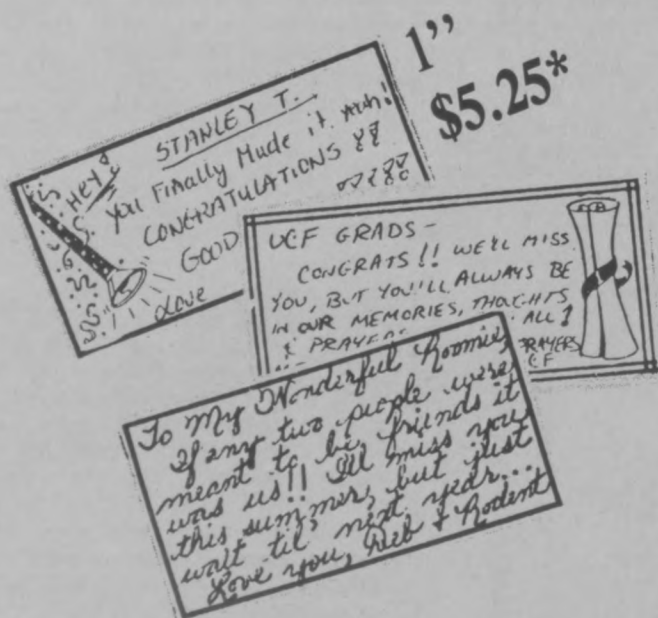 1”
$5.25*
HEY!
STANLEY T.
You Finally Made it
CONGRATULATIONS
GOOD
Love
UCF GRADS -
CONGRATS!! WE'LL MISS
YOU, BUT YOU'LL ALWAYS BE
IN OUR MEMORIES, THOUGHTS
& PRAYERS ALL
PRAYERS
To My Wonderful Roomie,
If any two people were
meant to be friends it
was us!! I'll miss you
this summer, but just
wait til next year...
Love you, Deb + Rodent